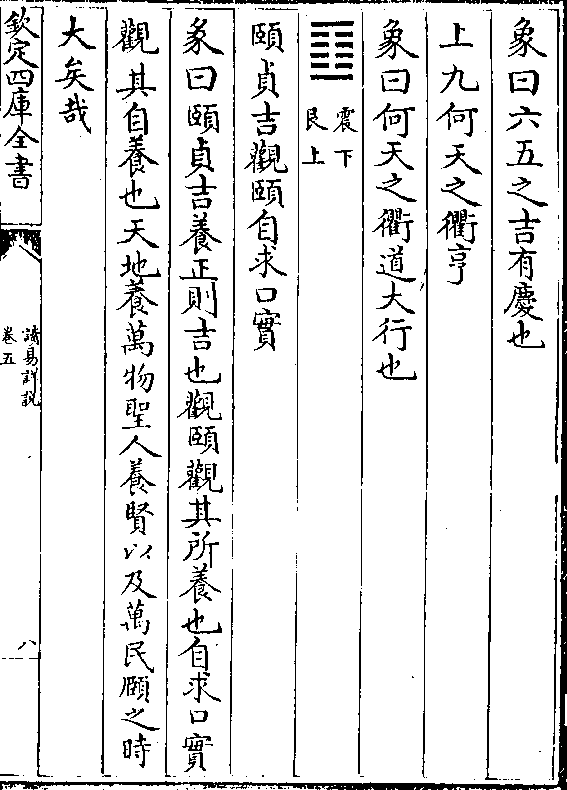 象曰六五之吉有慶也
上九何天之衢亨
象曰何天之衢道大行也
震下
艮上
頤貞吉觀頤自求口實
彖曰頤貞吉養正則吉也觀頤觀其所養也自求口實
觀其自養也天地養萬物聖人養賢以及萬民頤之時
大矣哉
欽定四庫全書
讀易詳說
卷五
八